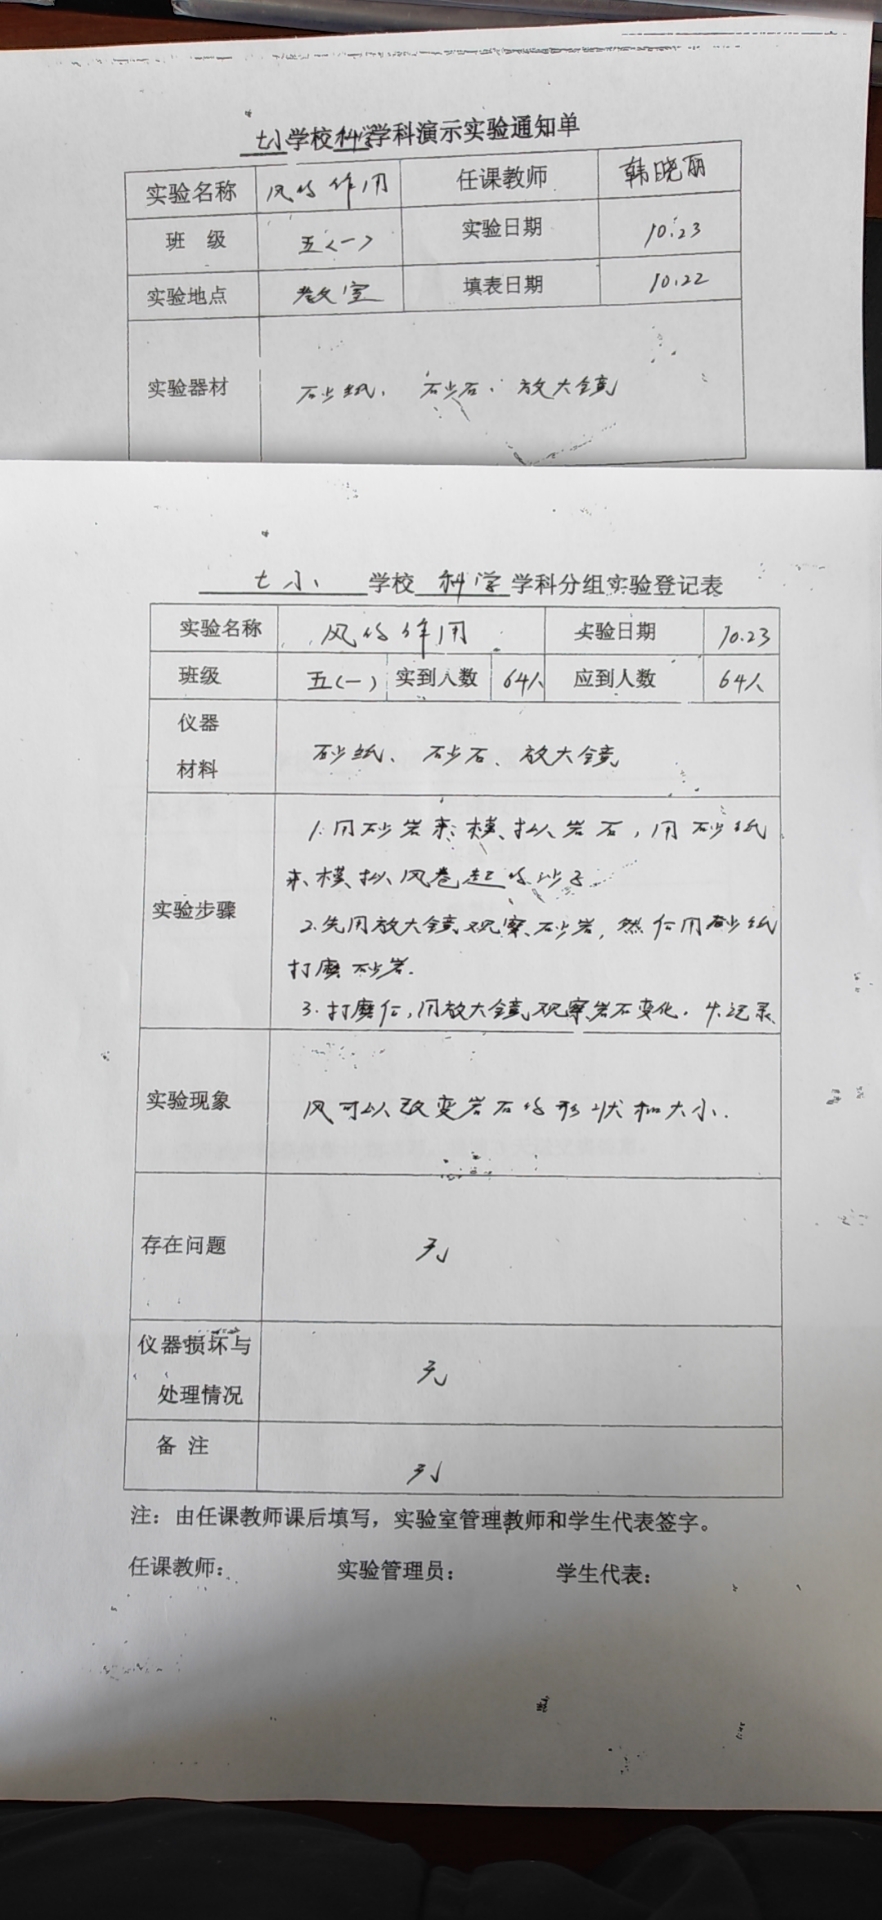 七小学校科学学科演示实验通知单
实验名称 风的作用 任课教师 韩晓丽
班 级 五(一) 实验日期 10.23
实验地点 教室 填表日期 10.22
实验器材 砂纸、砂石、放大镜
七小 学校 科学 学科分组实验登记表
实验名称 风的作用 实验日期 10.23
班级 五(一) 实到人数 64人 应到人数 64人
仪器
材料
砂纸、砂石、放大镜
实验步骤
1.用砂岩来模拟岩石,用砂纸
来模拟风卷起的沙子
2.先用放大镜观察砂岩,然后用砂纸
打磨砂岩.
3.打磨后,用放大镜观察岩石变化. 4.记录
实验现象 风可以改变岩石的形状和大小.
存在问题 无
仪器损坏与
处理情况
无
备 注 无
注:由任课教师课后填写,实验室管理教师和学生代表签字。
任课教师: 实验管理员: 学生代表: